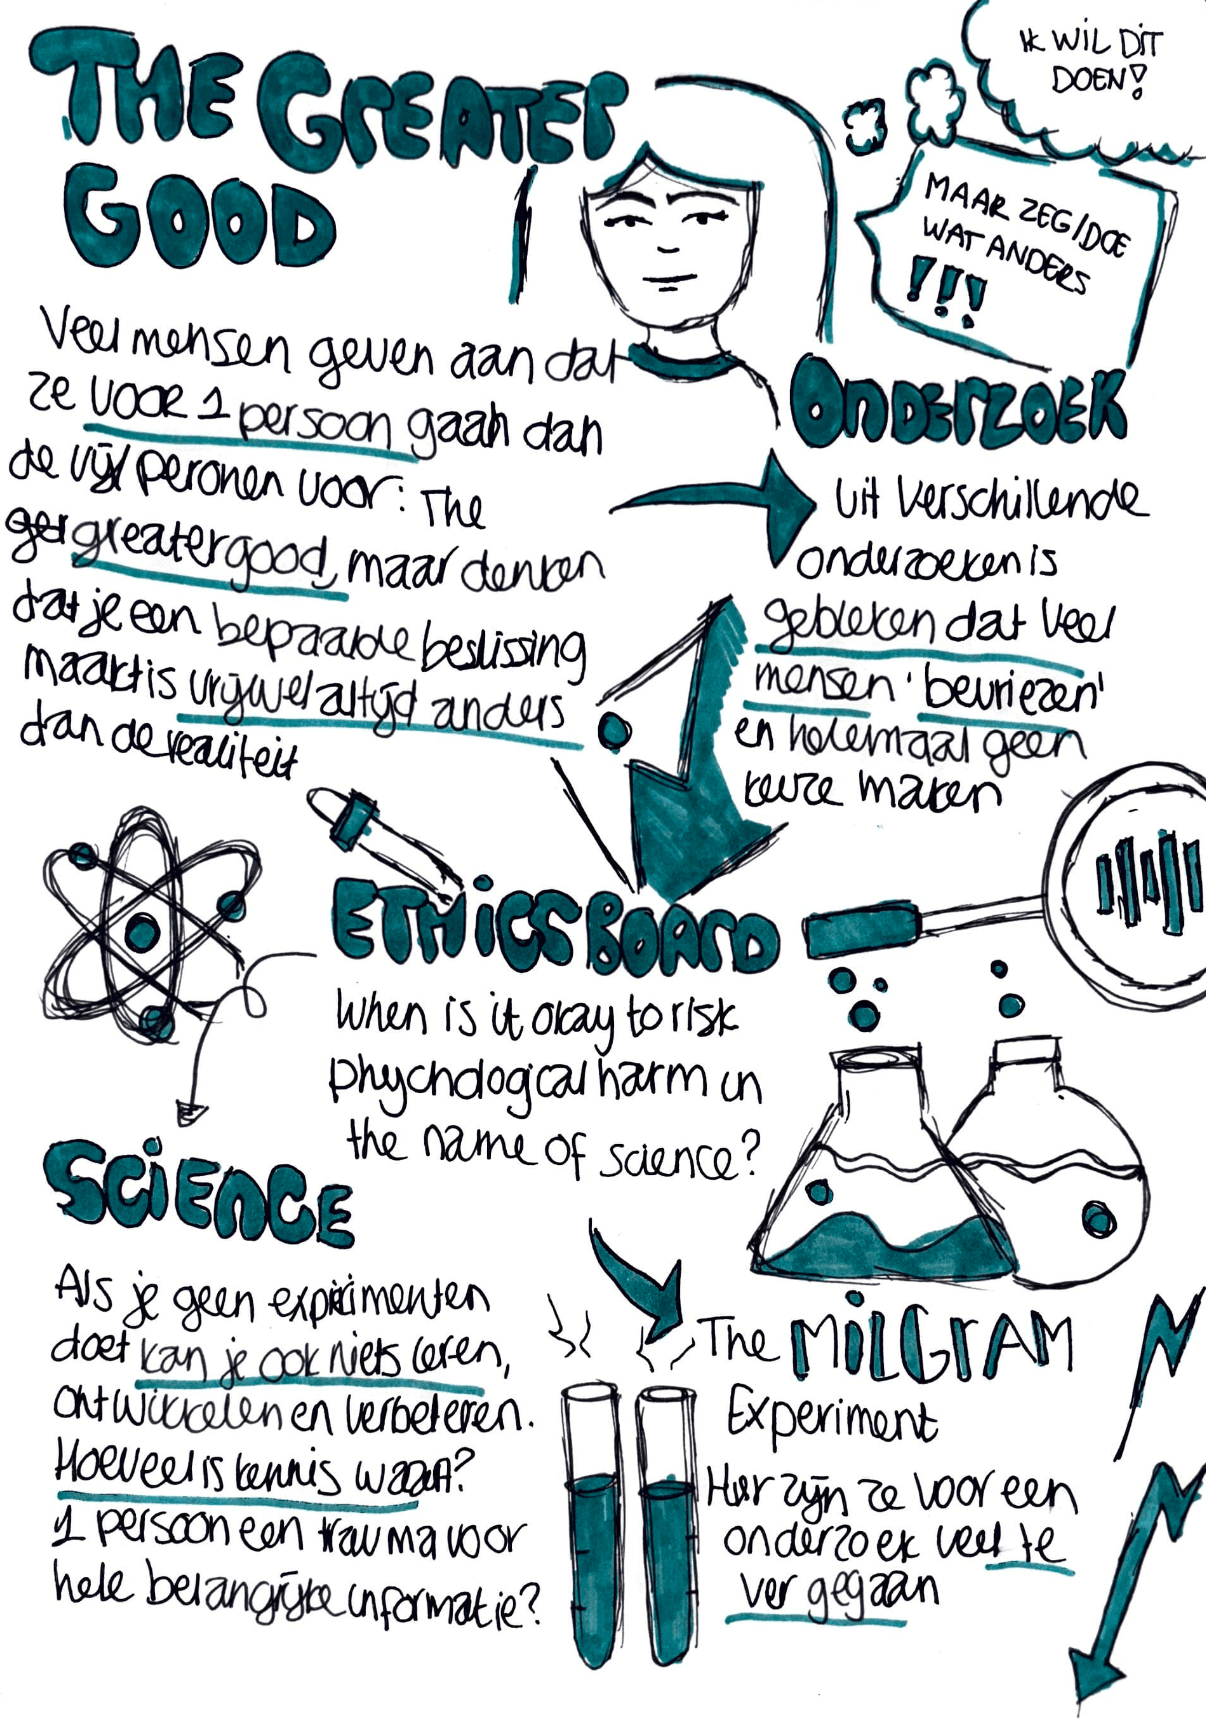 THE GREATER
GOOD
IK WIL DIT
DOEN!
MAAR ZEG/DOE
WAT ANDERS
!!!
Veel mensen geven aan dat
ze voor 1 persoon gaan dan
de vijf peronen voor: The
greater good, maar denken
dat je een bepaalde beslissing
maakt is vrijwel altijd anders
dan de realiteit
ONDERZOEK
uit verschillende
onderzoeken is
gebleken dat veel
mensen 'bevriezen'
en helemaal geen
keuze maken
ETHICS BOARD
When is it okay to risk
phychological harm in
the name of science?
SCIENCE
Als je geen experimenten
doet kan je ook niets leren,
ontwikkelen en verbeteren.
Hoeveel is kennis waard?
1 persoon een trauma voor
hele belangrijke informatie?
The MILGRAM
Experiment
Hier zijn ze voor een
onderzoek veel te
ver gegaan